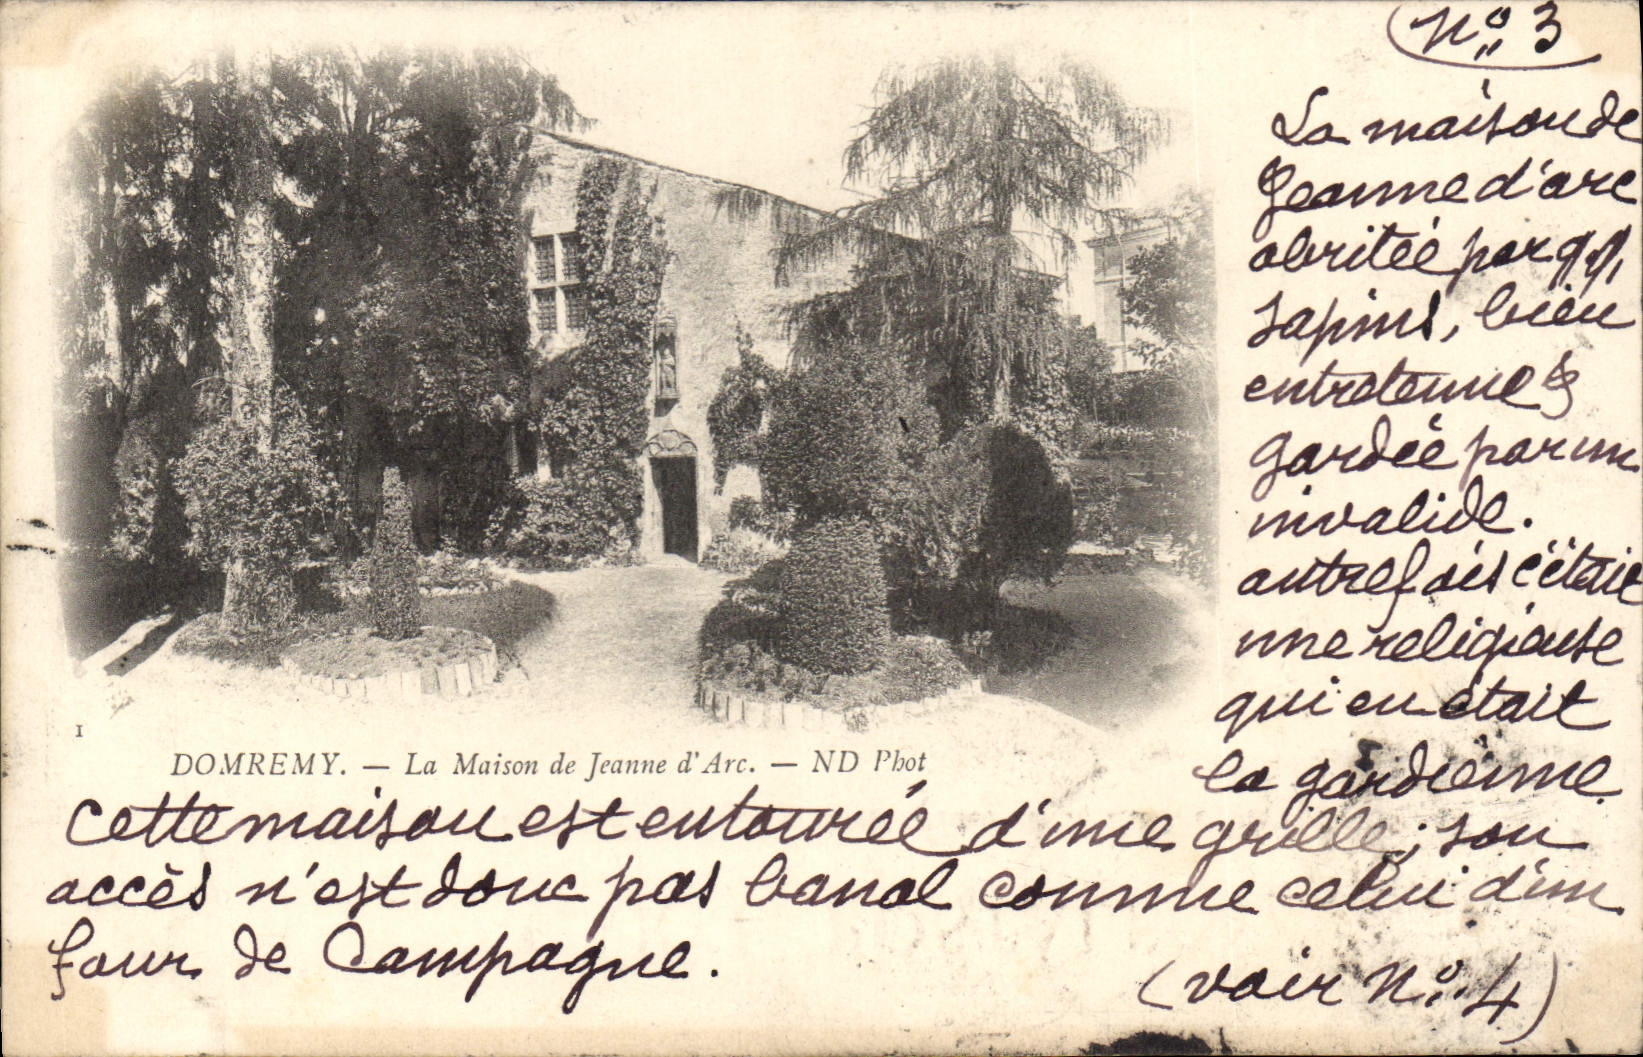 N° 3
La maison de
Jeanne d'arc
abritée par qq
sapins, bien
entretenue &
gardée par un
invalide.
autrefois c'était
une religieuse
qui en était
la gardienne
1
DOMREMY. — La Maison de Jeanne d'Arc. — ND Phot
Cette maison est entourée d'une grille; son
accès n'est donc pas banal comme celui d'un
four de Campagne.
(voir N° 4)